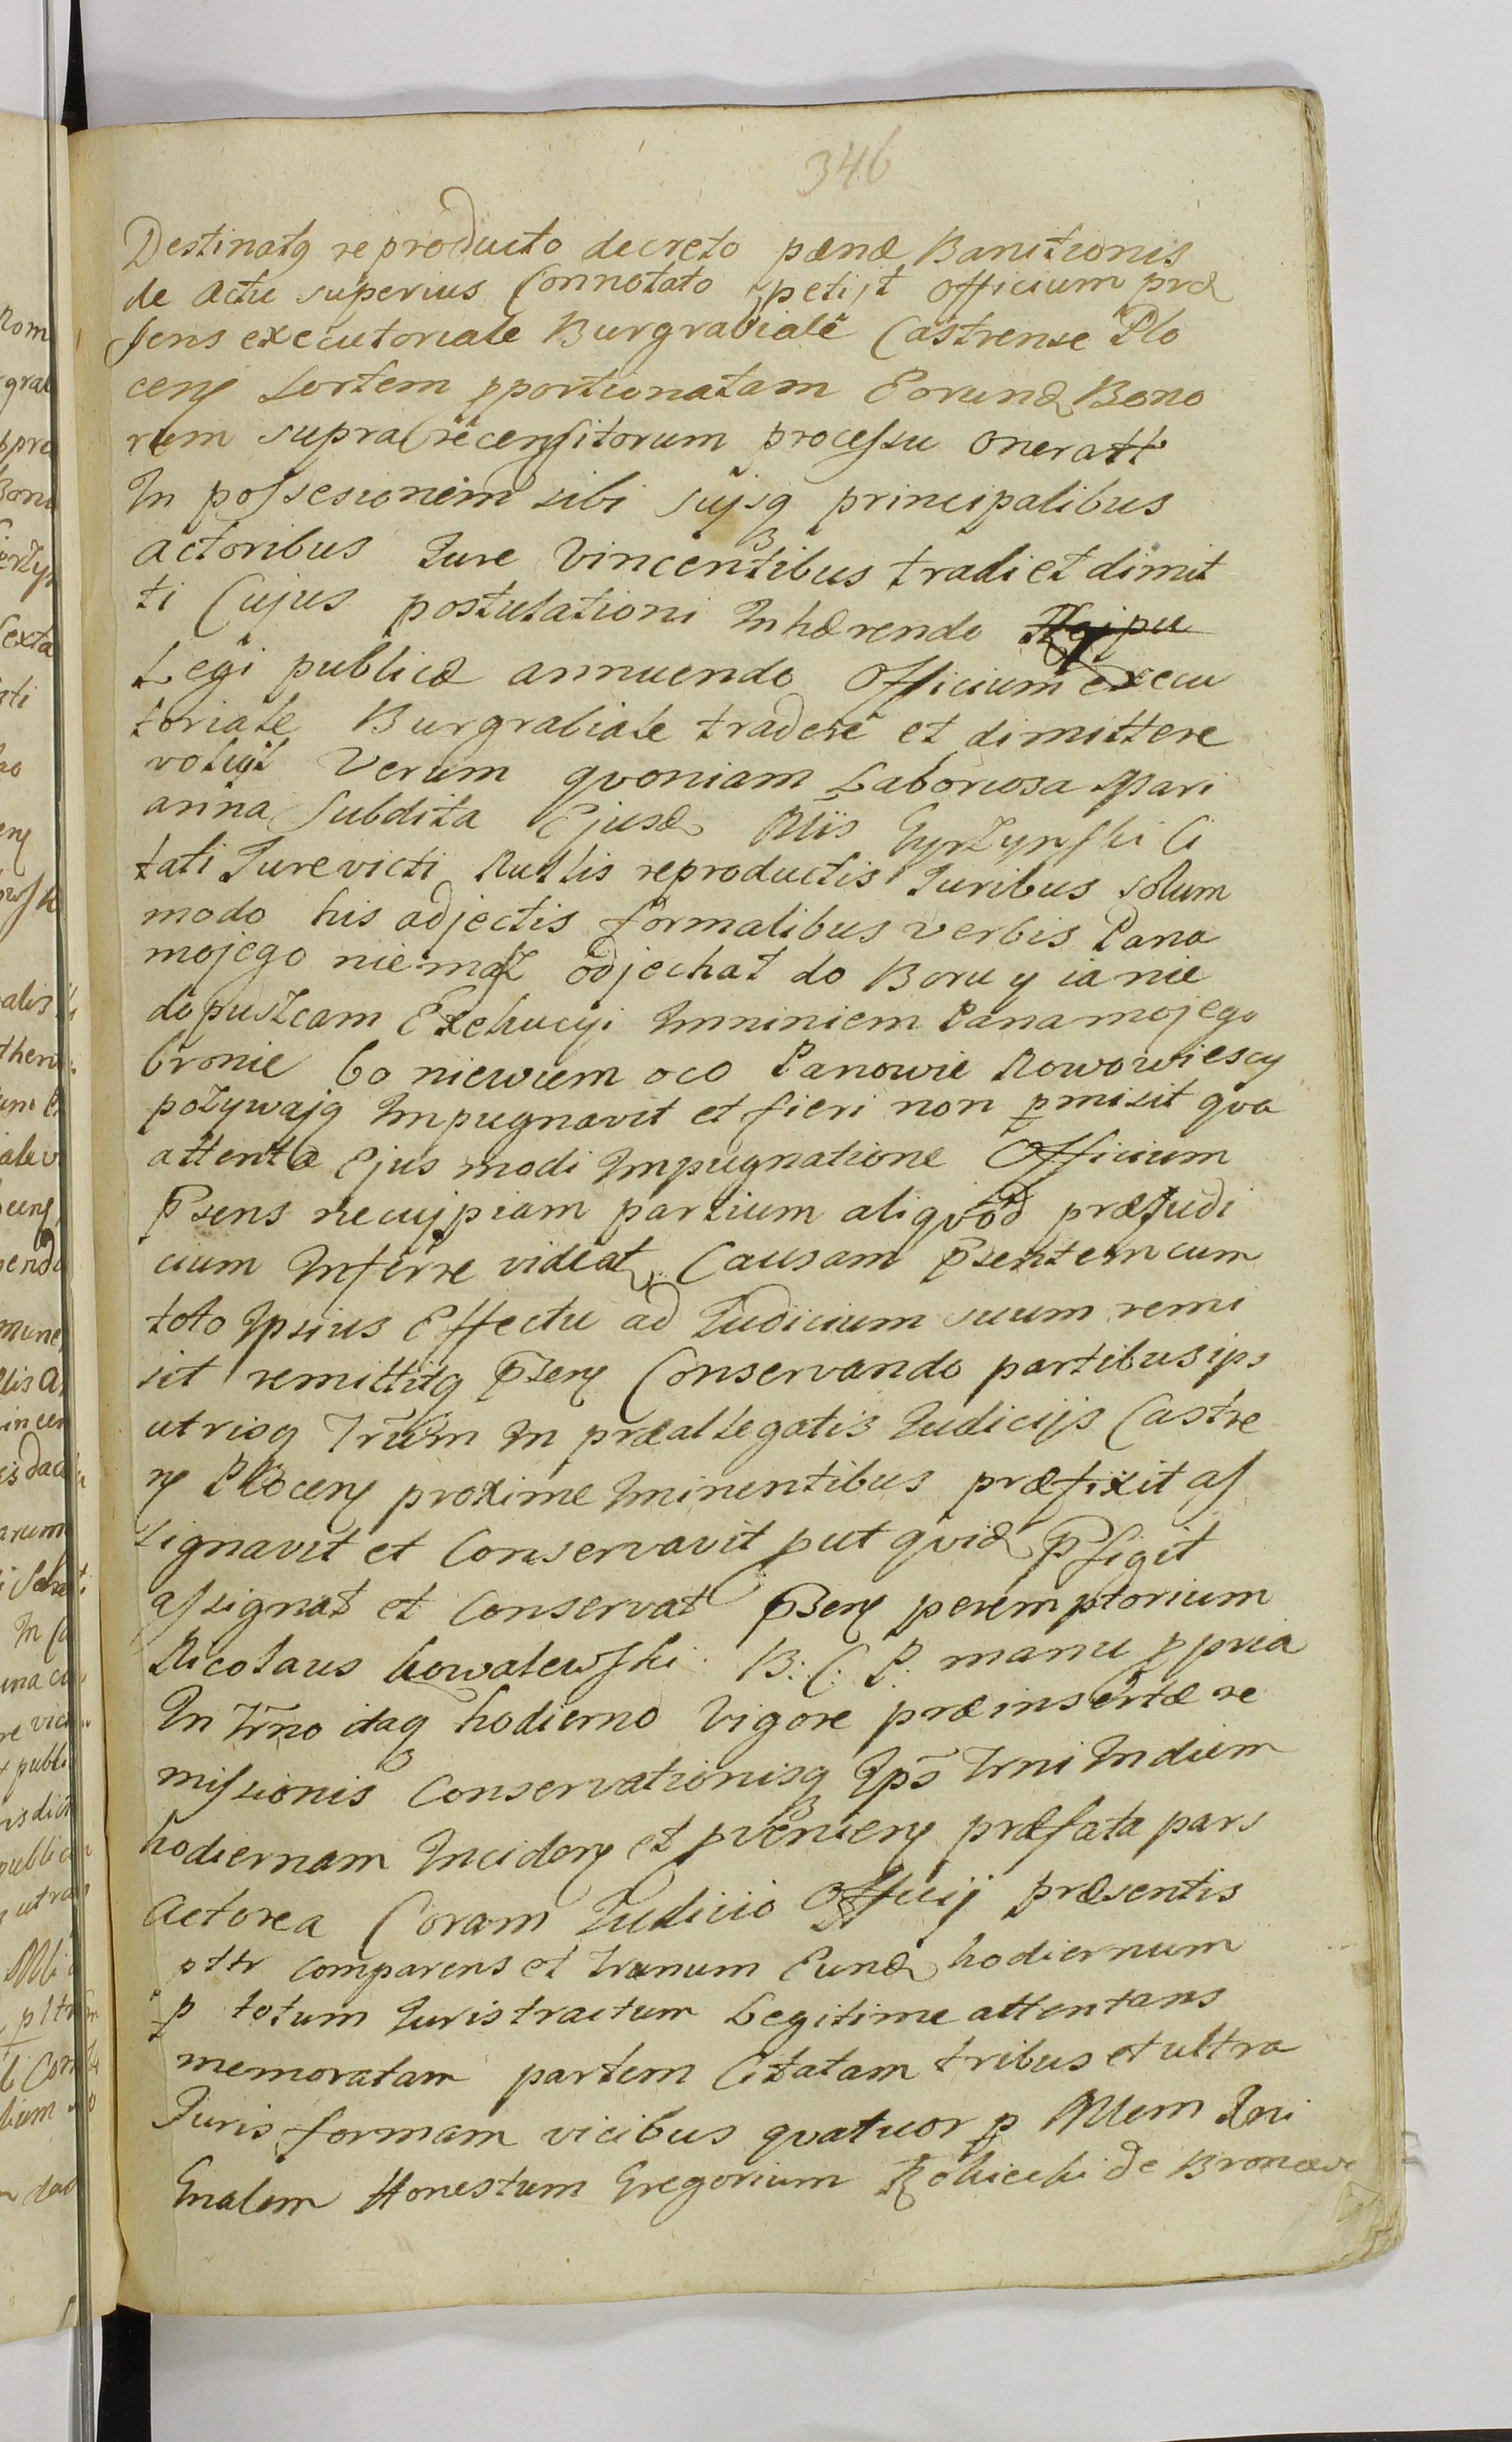 346
Destinatq reproducto decreto pænæ Banitionis
de Actu superius Connotato petijt officium præ
sens executoriale Burgrabiale Castrense Plo
cens Sortem pportionatam Eorund Bono
rum supra recensitorum processu oneratt
In possesionem sibi sujsq principalibus
actoribus Jure Vincentibus tradi et dimit
ti Cujus postulationi Inhærendo
Legi publicæ annuendo Officium execu
toriale Burgrabiale tradere et dimittere
voluit Verum qvoniam Laboriosa Mari
anna Subdita Ejusd Mlis Gyrzynski Ci
tati Jurevicti Nullis reproductis Juribus solum
modo his adjectis formalibus verbis Pana
mojego niemasz odjechał do Boru y ia nie
dopuszcam Exekucyi Imniniem Pana mojego
bronie bo niewiem oco Panowie Nowowiescy
pozywają Impugnavit et fieri non pmisit qva
attenta Ejus modi Impugnatione Officium
Psens ne cujpiam partium aliqvod præjudi
cium Inferre videat Causam Psentem cum
toto Ipsius Effectu ad Judicium suum remi
sit remittitq Psens Conservando partibus ips
utrisq Trum In præallegatis Judicijs Castre
ns Plocens proxime Iminentibus præfixit as
signavit et Conservavit put qvid Pfigit
assignat et Conservat Psens peremptorium
Nicolaus Kowalewski B. C. P. manu ppria
In Trno itaq hodierno Vigore præinsertæ re
missionis Conservationisq Ips Trni In diem
hodiernam Inciden et pvenien præfata pars
Actorea Coram Judicio Officij præsentis
pttr comparens et Trmnum Eund hodiernum
p totum Juris tractum Legitime attentans
memoratam partem Citatam tribus et ultra
Juris formam vicibus qvatuor p Mlem Rni
Gnalem Honestum Gregorium Rolicchi de Bronow